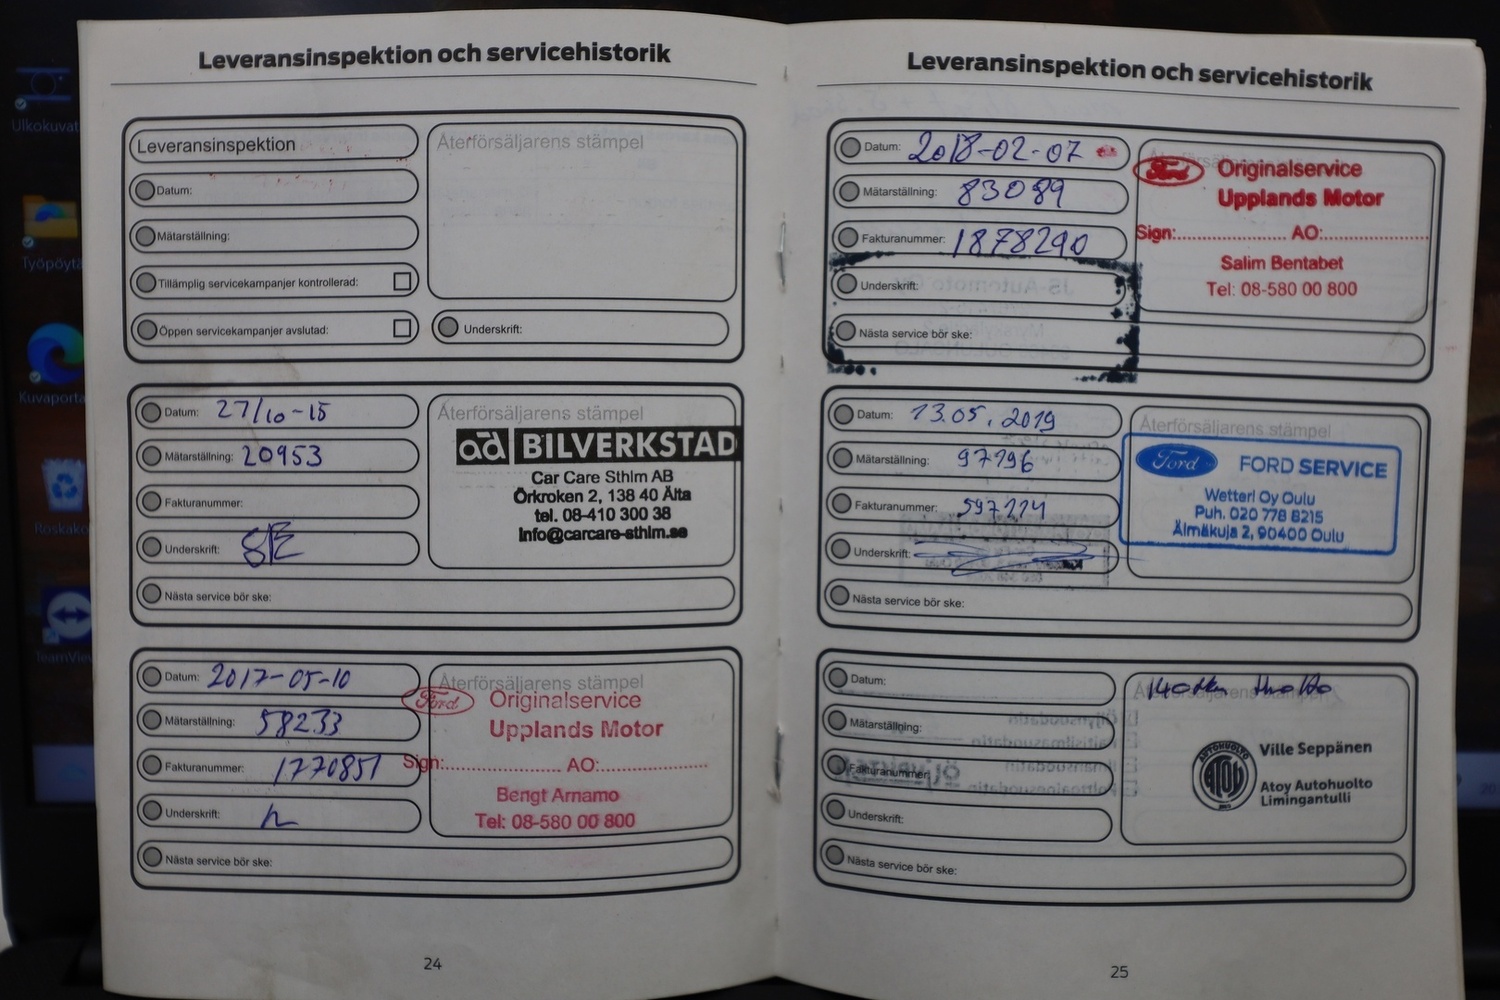 Leveransinspektion och servicehistorik
Leveransinspektion
Datum:
Mätarställning:
Tillämplig servicekampanjer kontrollerad:
Öppen servicekampanjer avslutad:
Återförsäljarens stämpel
Underskrift:
Datum: 27/10-15
Mätarställning: 20953
Fakturanummer:
Underskrift:
Nästa service bör ske:
Återförsäljarens stämpel
ad BILVERKSTAD
Car Care Sthlm AB
Örkroken 2, 138 40 Älta
tel. 08-410 300 38
info@carcare-sthlm.se
Datum: 2017-05-10
Mätarställning: 58233
Fakturanummer: 1770851
Underskrift:
Nästa service bör ske:
Återförsäljarens stämpel
Ford Originalservice
Upplands Motor
Sign:.................... AO:....................
Bengt Arnamo
Tel: 08-580 00 800
24
Leveransinspektion och servicehistorik
Datum: 2018-02-07
Mätarställning: 83089
Fakturanummer: 1878290
Underskrift:
Nästa service bör ske:
Ford Originalservice
Upplands Motor
Sign:.................... AO:....................
Salim Bentabet
Tel: 08-580 00 800
Datum: 13.05.2019
Mätarställning: 97796
Fakturanummer: 597114
Underskrift:
Nästa service bör ske:
Återförsäljarens stämpel
Ford FORD SERVICE
Wetteri Oy Oulu
Puh. 020 778 8215
Älmäkuja 2, 90400 Oulu
Datum:
Mätarställning:
Fakturanummer:
Underskrift:
Nästa service bör ske:
Återförsäljarens stämpel
140tkm huolto
AUTOHUOLTO
Ville Seppänen
Atoy Autohuolto
Limingantulli
25
Ulkokuvat
Työpöytä
Kuvaporta
Roskako
TeamView